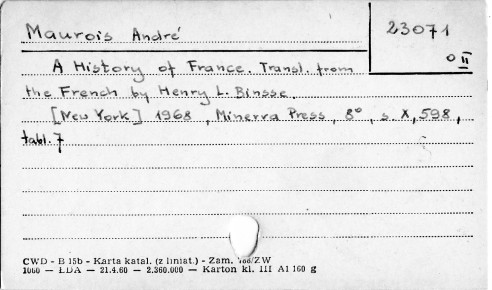 Maurois André
23071
O II
A History of France. Transl. from
the French by Henry L. Binsse.
[New York] 1968, Minerva Press, 8°, s. X, 598,
tabl. 7
CWD - B 15b - Karta katal. (z liniat.) - Zam. /ZW
1060 — ŁDA — 21.4.60 - 2.360.000 — Karton kl. III A1 160 g